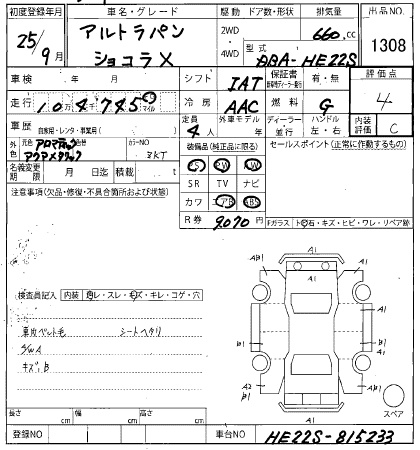 初度登録年月 車名・グレード 駆動 ドア数・形状 排気量 出品NO
25/9月 アルトラパン 2WD 660 cc
ショコラX ・4WD 型式 DBA-HE22S 1308
車検 年 月 シフト IAT 保証書 有・無 評価点
走行 10万4745 マイル 冷房 AAC 燃料 G 4
車歴 自家用・レンタ・事業用( ) 定員 4人 外車モデル 年 ディーラー・並行 ハンドル 左・右 内装評価 C
外色 元色 色替 カラーNO ZKT 装備品(純正品に限る) セールスポイント(正常に作動するもの)
名義変更期限 月 日迄 積載 t PS PW AW
SR TV ナビ
注意事項(欠品・修復・不具合箇所および状態) カワ エアB ABS
R券 9070円 Fガラス ト石・キズ・ヒビ・ワレ・リペア跡
A1
A1
AB1 A1
A1
B1 B1
検査員記入 内装 ヨレ・スレ・キズ・キレ・コゲ・穴
車内ペット毛 シートヘタリ
S/WA
キズ・B
A1
B1
A2 AB1
B1
A1 スペア
長さ cm 幅 cm 高さ cm
登録NO 車台NO HE22S-815233